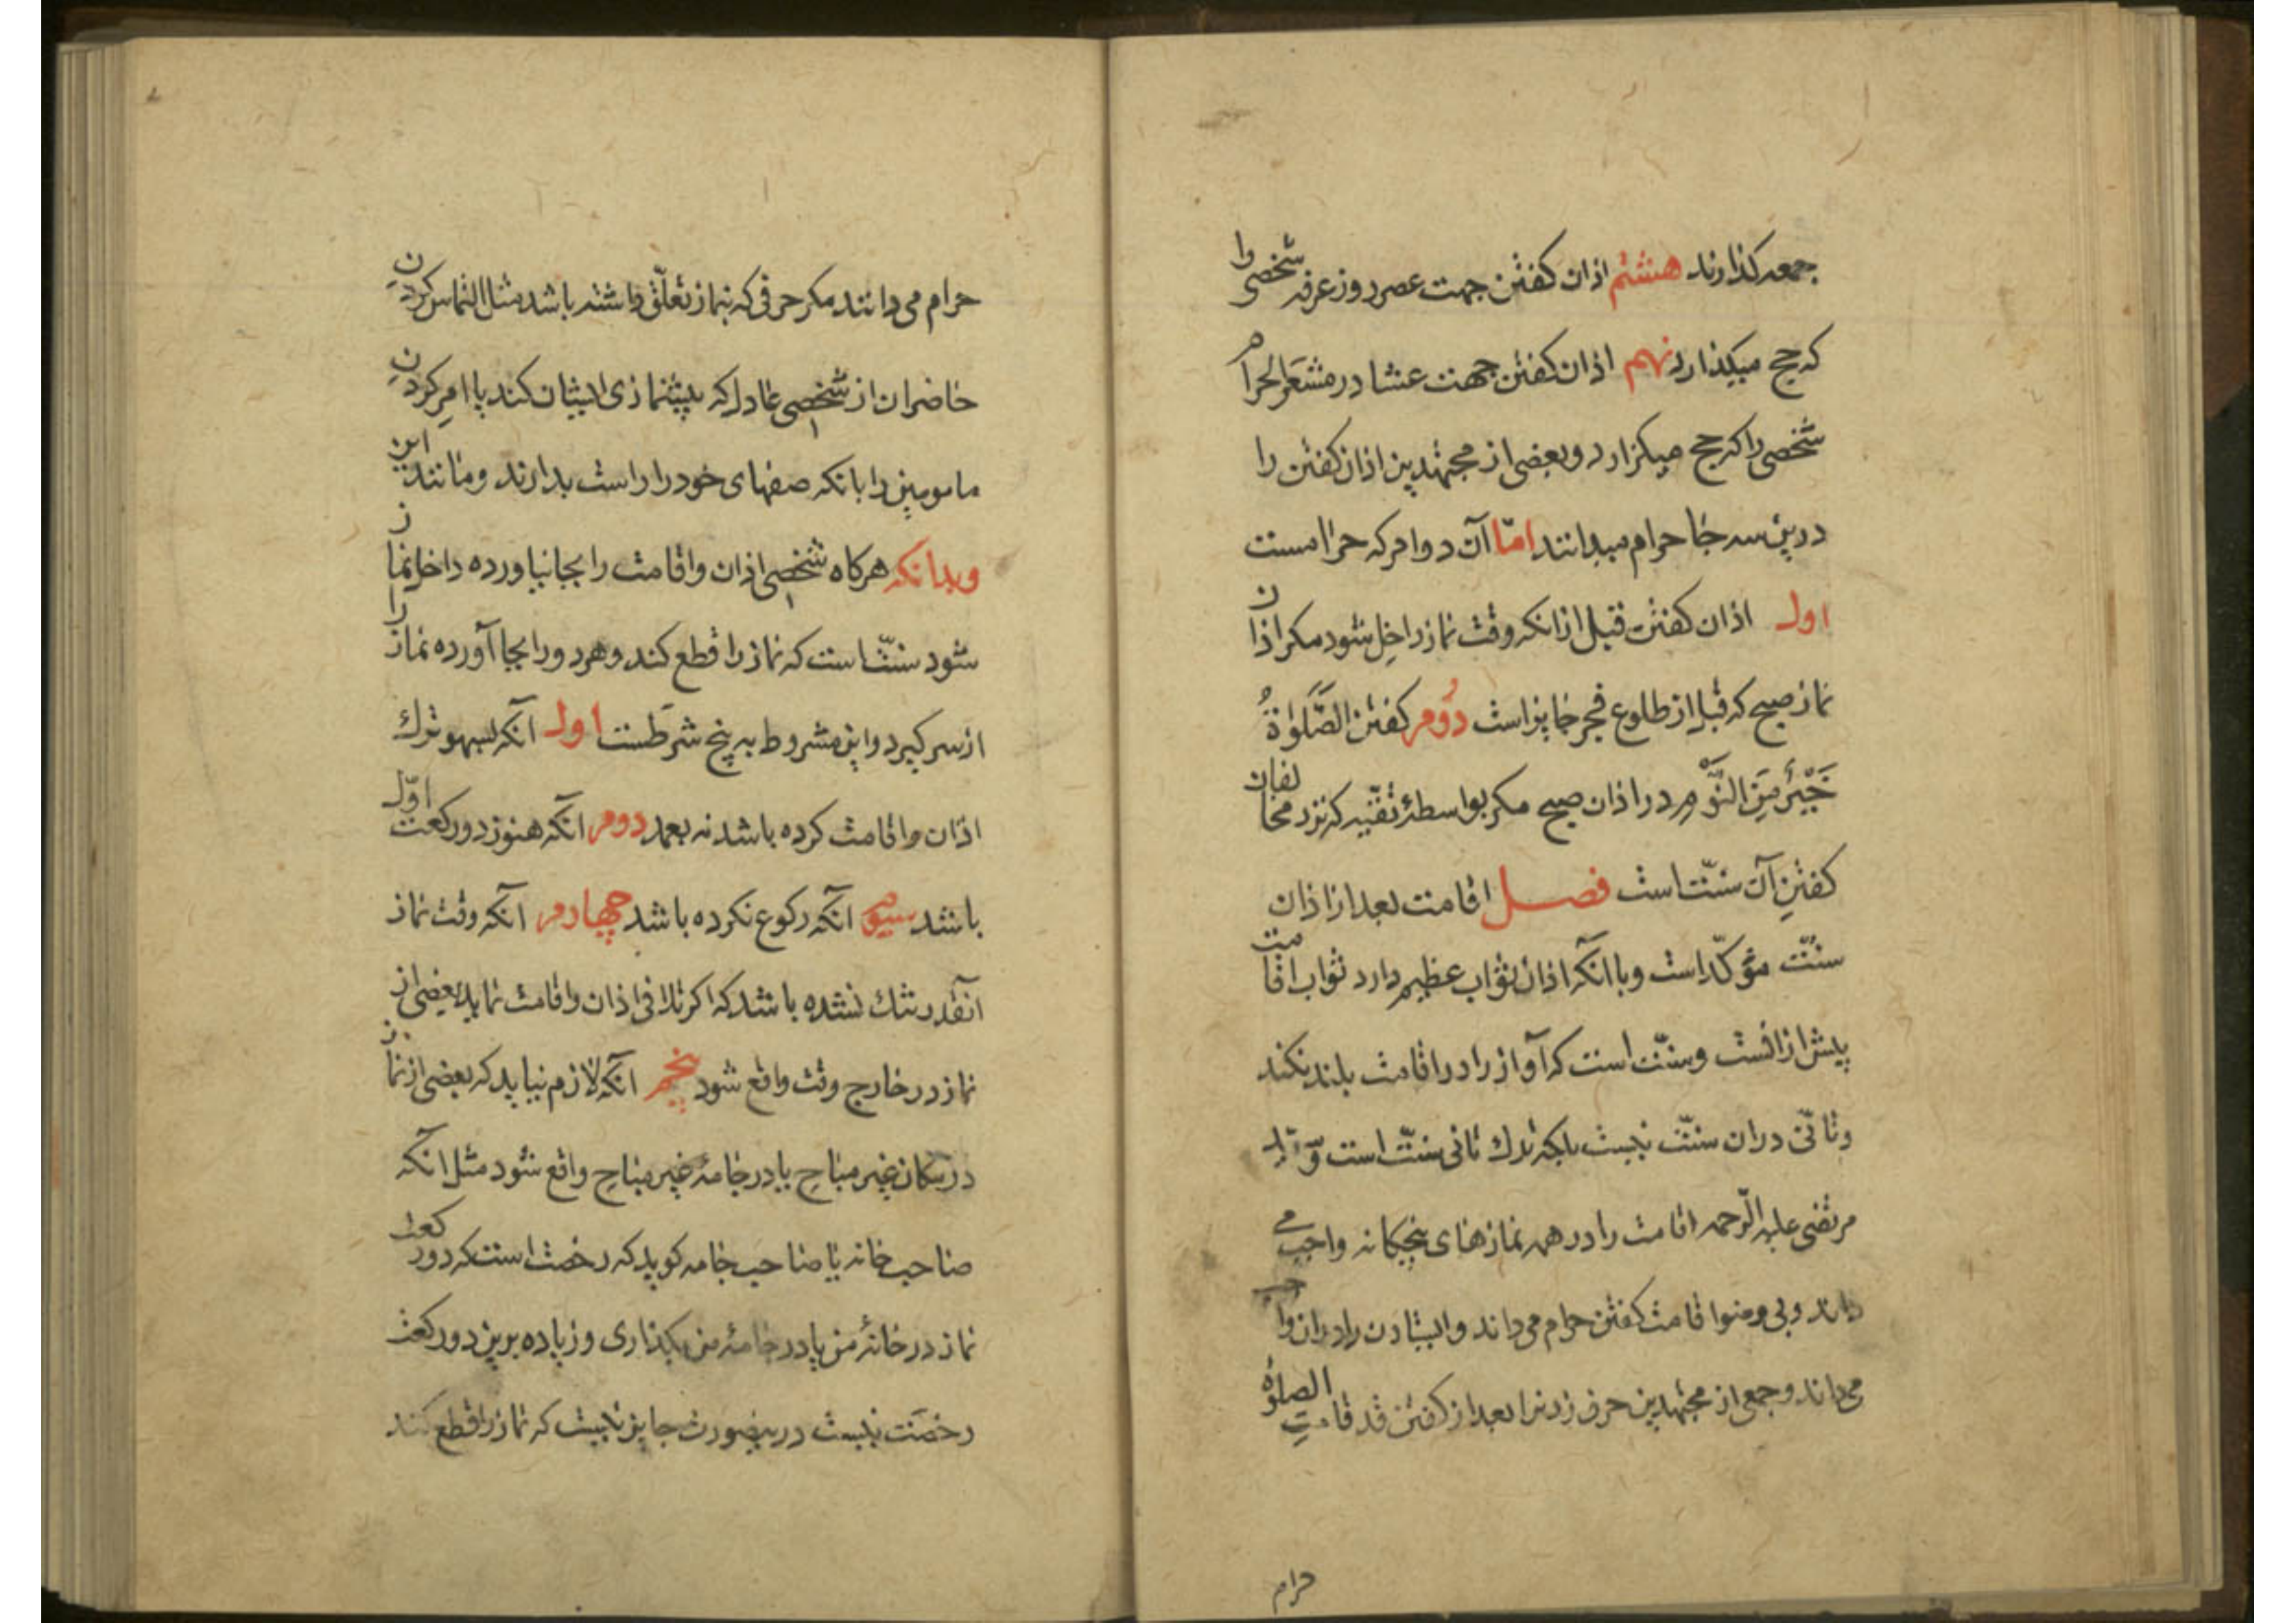 جمعه کذارند هشتم اذان کفتن جهت عصر روز عرفه شخصی را
که حج میکذارد نهم اذان کفتن جهت عشا در مشعر الحرام
شخصی را که حج میکزارد و بعضی از مجتهدین اذان کفتن را
درین سه جا حرام میدانند امّا آن دو امر که حرامست
اول اذان کفتن قبل از انکه وقت نماز داخل شود مکر اذان
نماز صبح که قبل از طلوع فجر جایز است دوم کفتن الصَّلوٰةُ
خَیْرٌ مِنَ النَّوْم در اذان صبح مکر بواسطهٔ تقیّه که نزد مخالفان
کفتنِ آن سنّت است فصل اقامت بعد از اذان
سنّت مؤکّد است و با آنکه اذان ثواب عظیم دارد ثواب اقامت
پیش از انست و سنّت است که آواز را در اقامت بلند نکند
و تأنّی در ان سنّت نیست بلکه ترك تانی سنّت است و سیّد
مرتضی علیه الرّحمه اقامت را در همه نمازهای پنجکانه واجب می
داند و بی وضو اقامت کفتن حرام می داند و ایستادن را در ان واجب
می داند و جمعی از مجتهدین حرف زدنرا بعد از کفتن قد قامتِ الصلوٰة
حرام
حرام می دانند مکر حرفی که بنماز تعلّق داشته باشد مثل التماس کردنِ
حاضران از شخصی عادل که پیشنمازی ایشان کند یا امرِ کردنِ
مامومین را بانکه صفهای خود را راست بدارند و مانند این
و بدانکه هرکاه شخصی اذان و اقامت را بجا نیاورده داخل نماز
شود سنّت است که نماز را قطع کند و هر دو را بجا آورده نماز را
از سر کیرد و این مشروط به پنج شرطست اول آنکه بسهو ترك
اذان و اقامت کرده باشد نه بعمد دوم انکه هنوز در رکعت اوّل
باشد سیوم آنکه رکوع نکرده باشد چهارم آنکه وقت نماز
آنقدر تنك نشده باشد که اکر تلافی اذان و اقامت نماید بعضی از
نماز در خارج وقت واقع شود پنجم آنکه لازم نیاید که بعضی از نماز
در مکان غیر مباح یا در جامهٔ غیر مباح واقع شود مثل انکه
صاحب خانه یا صاحب جامه کوید که رخصت است که دو رکعت
نماز در خانهٔ من یا در جامهٔ من بکذاری و زیاده برین دو رکعت
رخصت نیست درینصورت جایز نیست که نماز را قطع کند